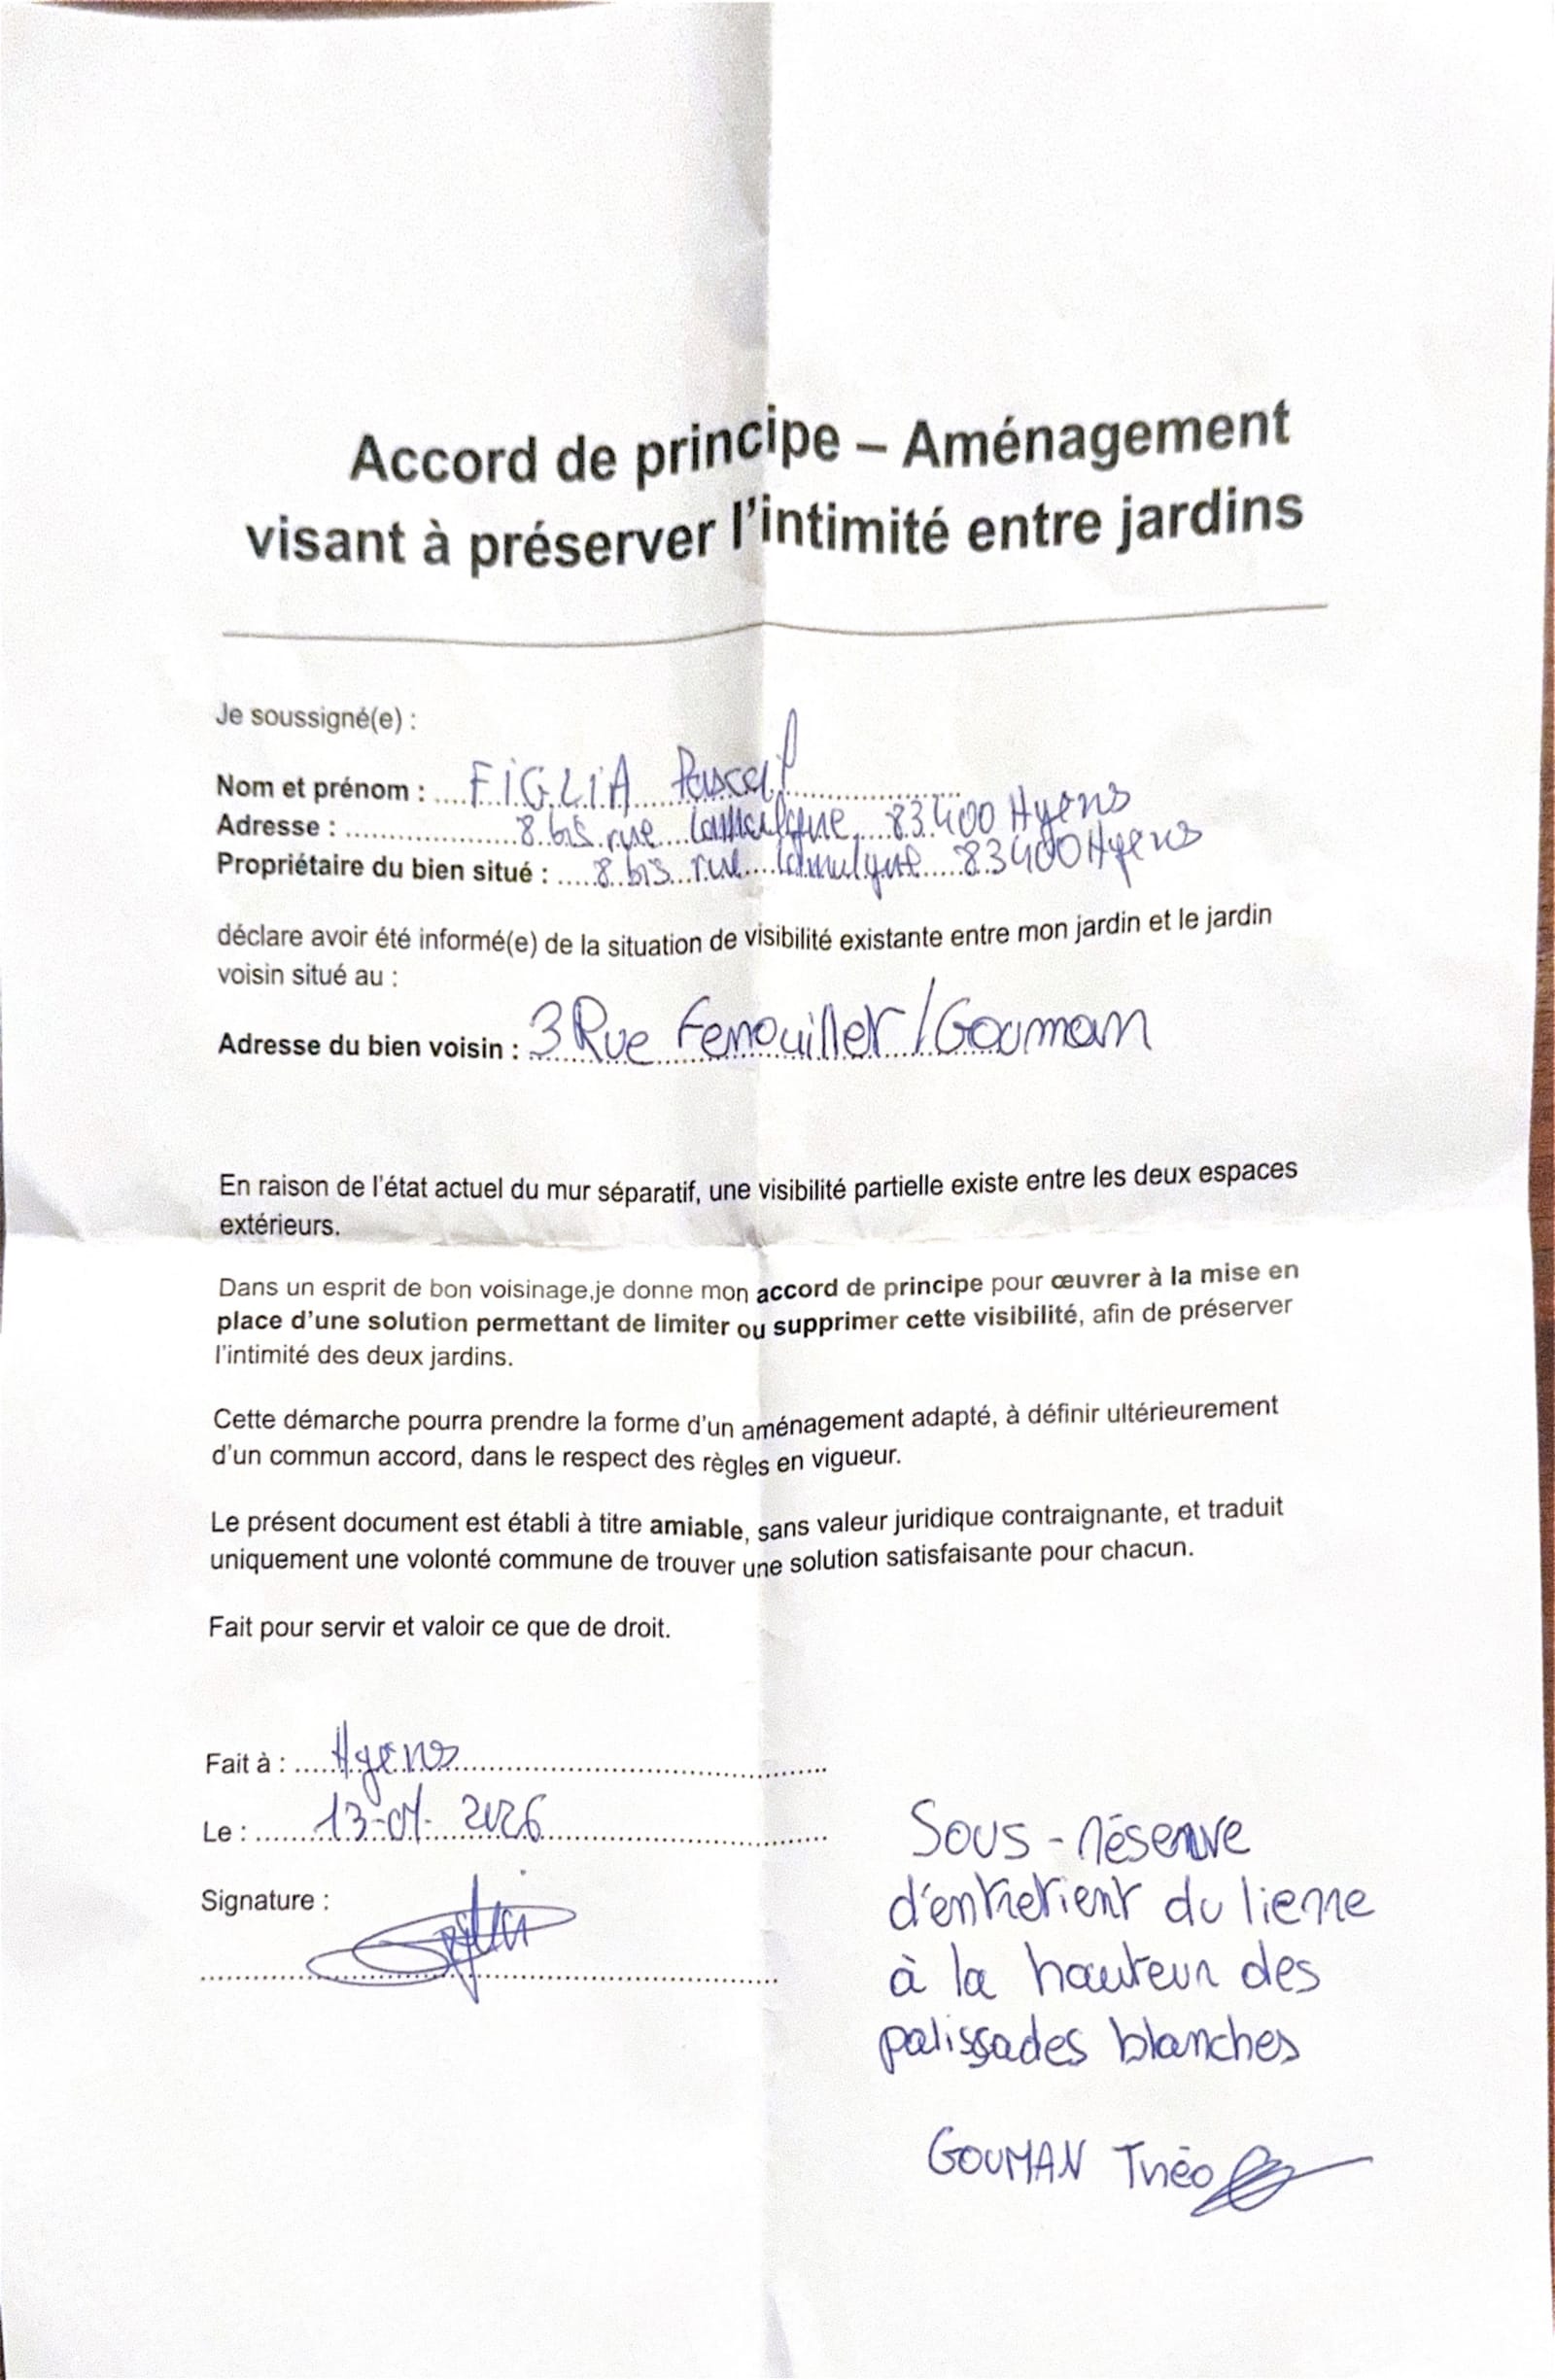 Accord de principe – Aménagement
visant à préserver l'intimité entre jardins
Je soussigné(e) :
Nom et prénom : FIGLIA Pascal
Adresse : 8 bis rue 83400 Hyères
Propriétaire du bien situé : 8 bis rue 83400 Hyères
déclare avoir été informé(e) de la situation de visibilité existante entre mon jardin et le jardin
voisin situé au :
Adresse du bien voisin : 3 Rue Fenouillet / Gouman
En raison de l'état actuel du mur séparatif, une visibilité partielle existe entre les deux espaces
extérieurs.
Dans un esprit de bon voisinage,je donne mon accord de principe pour œuvrer à la mise en
place d'une solution permettant de limiter ou supprimer cette visibilité, afin de préserver
l'intimité des deux jardins.
Cette démarche pourra prendre la forme d'un aménagement adapté, à définir ultérieurement
d'un commun accord, dans le respect des règles en vigueur.
Le présent document est établi à titre amiable, sans valeur juridique contraignante, et traduit
uniquement une volonté commune de trouver une solution satisfaisante pour chacun.
Fait pour servir et valoir ce que de droit.
Fait à : Hyères
Le : 13-01-2026
Signature :
Sous-réserve
d'entretient du lierre
à la hauteur des
palissades blanches
GOUMAN Théo